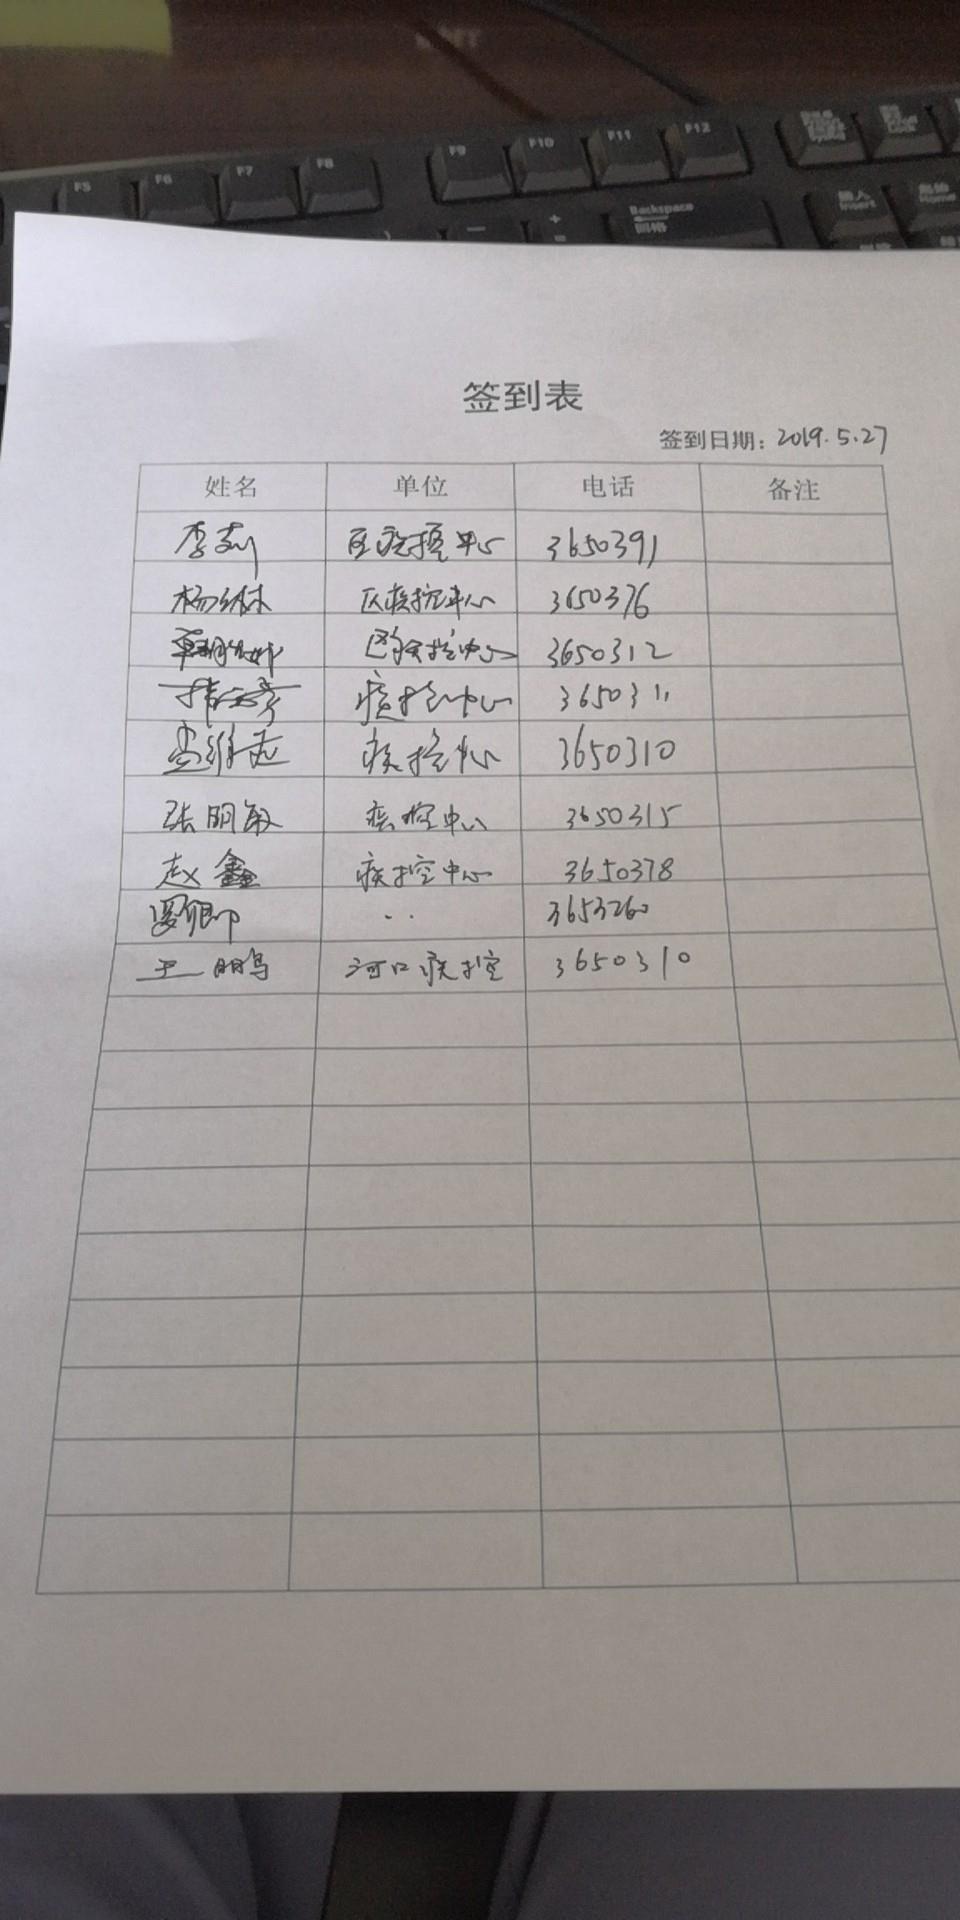 F5 F6 F7 F8 F9 F10 F11 F12
插入 Insert
Home
Backspace
签到表
签到日期：2019.5.27
姓名 单位 电话 备注
李莉 区疾控中心 3650391
杨 区疾控中心 3650376
区疾控中心 3650312
疾控中心 3650311
疾控中心 3650310
张明敏 疾控中心 3650315
赵鑫 疾控中心 3650378
3653260
王鹏 河口疾控 3650310